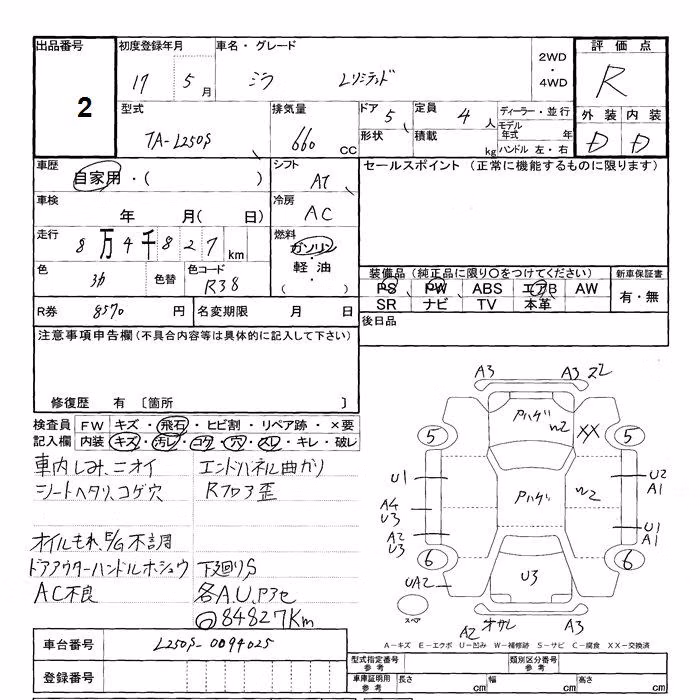 出品番号
2
初度登録年月
17 5月
車名・グレード
ミラ Lリミテッド
2WD
・
4WD
評価点
R
型式
TA-L250S
排気量
660 CC
ドア 5
定員 4人
ディーラー・並行
モデル年式 年
形状
積載 kg
ハンドル 左・右
外装 内装
D D
車歴
自家用・( )
シフト
AT
セールスポイント (正常に機能するものに限ります)
車検
年 月( 日)
冷房
AC
走行
8万4千827km
燃料
ガソリン
・
軽・油
( )
色
色替
色コード
R38
装備品(純正品に限り○をつけてください)
新車保証書
PS PW ABS エアB AW
SR ナビ TV 本革
有・無
R券 8570 円
名変期限 月 日
後日品
注意事項申告欄(不具合内容等は具体的に記入して下さい)
修復歴 有 〔箇所 〕
検査員 FW キズ・飛石・ヒビ割・リペア跡・×要
記入欄 内装 キズ・汚レ・コゲ・穴・スレ・キレ・破レ
車内しみ、ニオイ
シートヘタリ、コゲ穴
オイルもれ、E/G不調
ドアアウターハンドルホシュウ
AC不良
エンドパネル曲がり
Rフロア歪
下廻りS
各A.U.
84827Km
A3 A3
Pハゲ W2 XX
5 5
U1
Pハゲ W2
U2
A1
A4
U3
A2
U3
U1
A1
6 6
UA2
U3
スペア
A2 オサレ A3
A-キズ E-エクボ U-凹み W-補修跡 S-サビ C-腐食 XX-交換済
車台番号 L250S-0094025
登録番号
型式指定番号 参考
類別区分番号 参考
車庫証明用 参考
長さ cm
幅 cm
高さ cm